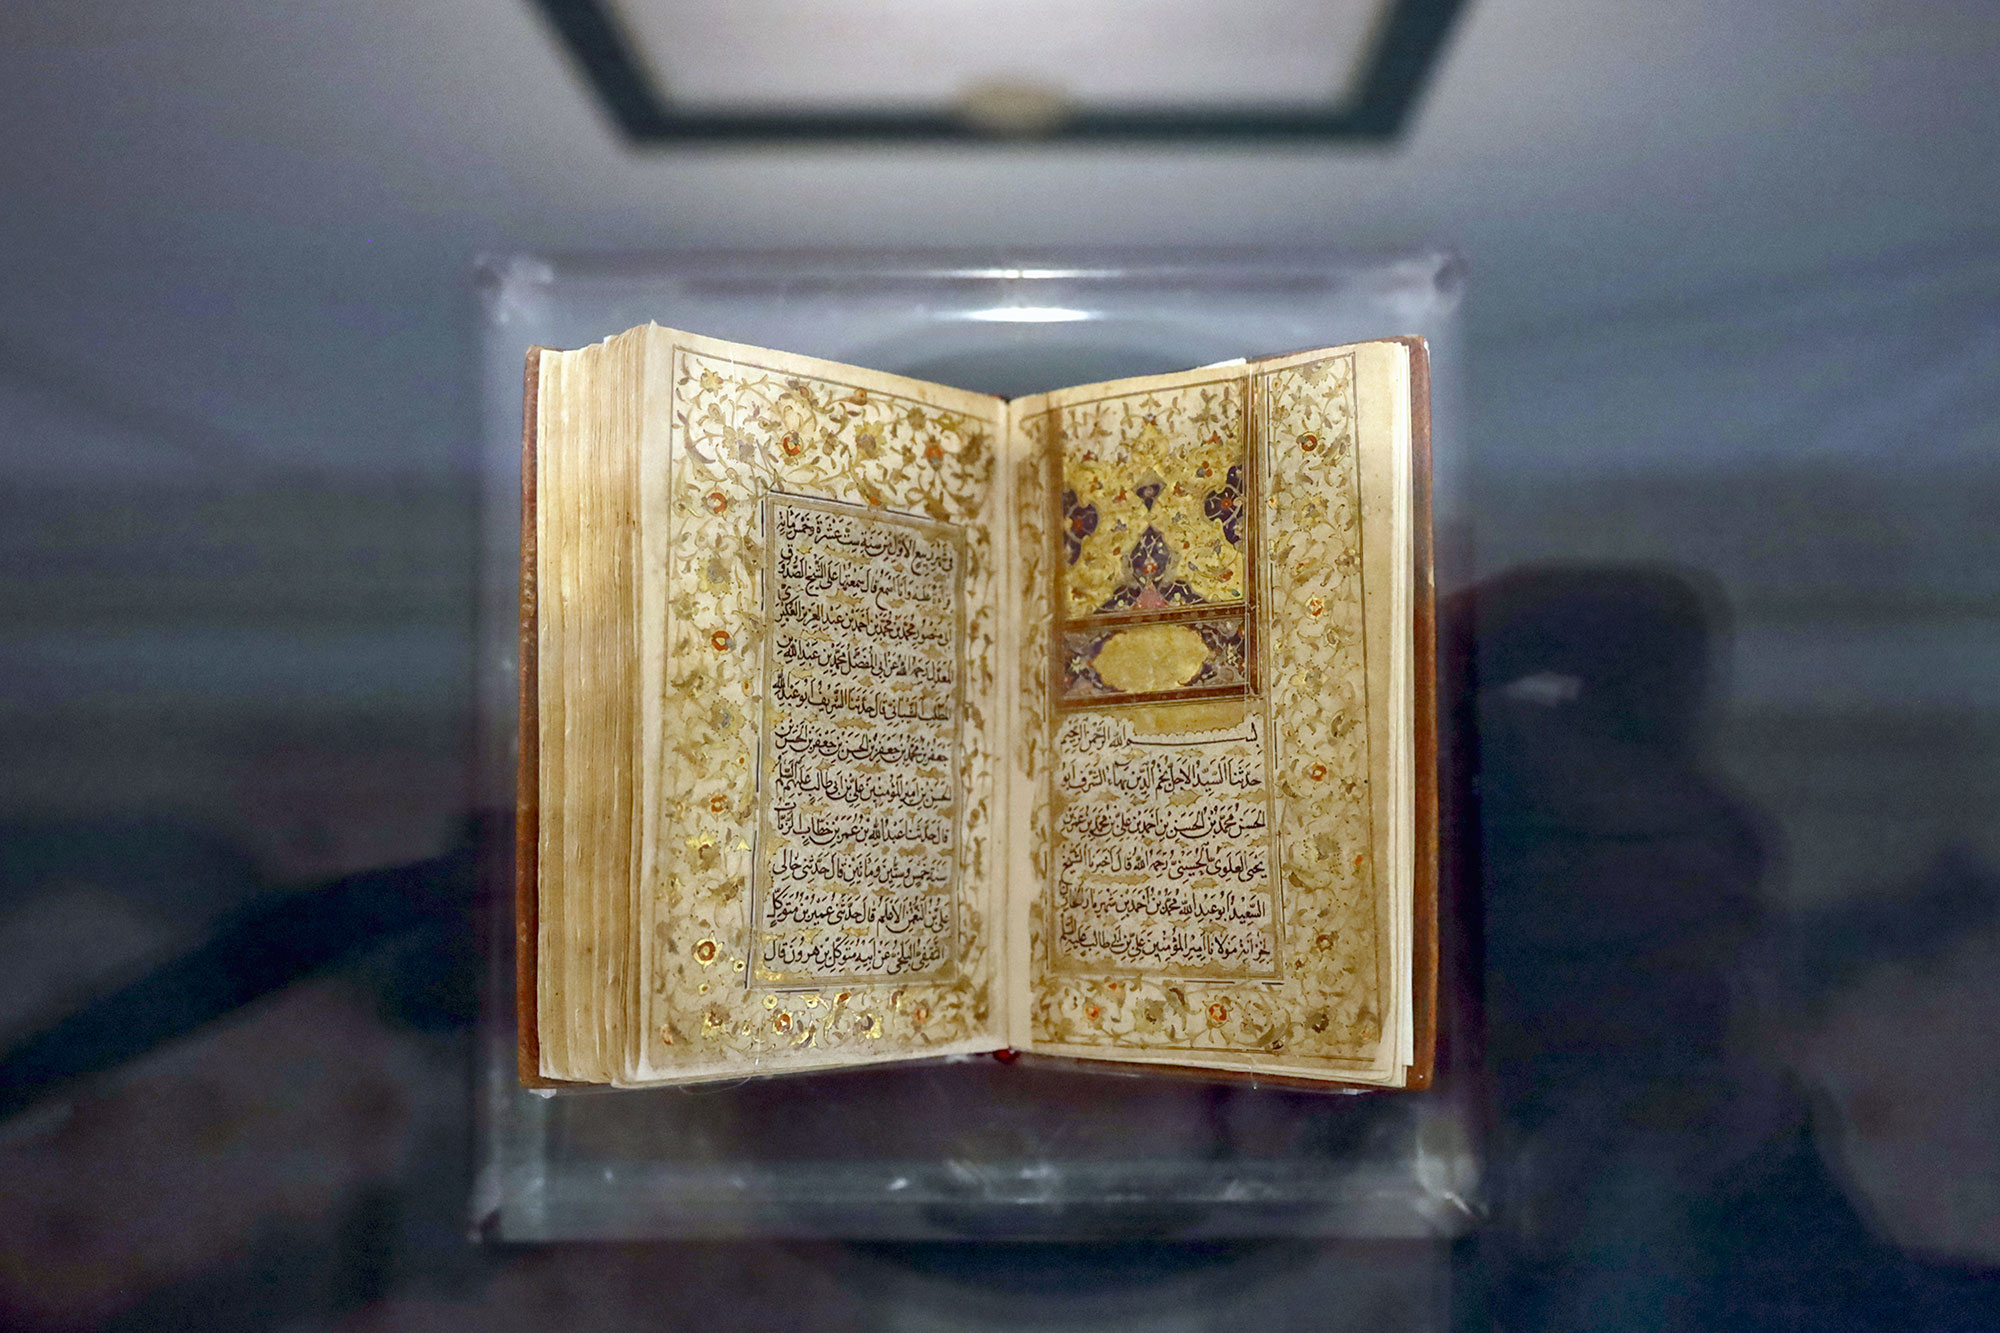 بسم الله الرحمن الرحيم
حَدَّثَنَا السَّيِّدُ الْأَجَلُّ نَجْمُ الدِّينِ بَهَاءُ الشَّرَفِ أَبُو
الْحَسَنِ مُحَمَّدُ بْنُ الْحَسَنِ بْنِ أَحْمَدَ بْنِ عَلِيِّ بْنِ مُحَمَّدِ بْنِ عُمَرَ بْنِ
يَحْيَى الْعَلَوِيُّ الْحُسَيْنِيُّ رَحِمَهُ اللهُ قَالَ أَخْبَرَنَا الشَّيْخُ
السَّعِيدُ أَبُو عَبْدِ اللهِ مُحَمَّدُ بْنُ أَحْمَدَ بْنِ شَهْرِيَارَ الْخَازِنُ
لِخِزَانَةِ مَوْلَانَا أَمِيرِ الْمُؤْمِنِينَ عَلِيِّ بْنِ أَبِي طَالِبٍ عَلَيْهِ السَّلَامُ
فِي شَهْرِ رَبِيعِ الْأَوَّلِ مِنْ سَنَةِ سِتَّ عَشْرَةَ وَخَمْسِمِائَةٍ
قِرَاءَةً عَلَيْهِ وَأَنَا أَسْمَعُ قَالَ سَمِعْتُهَا عَلَى الشَّيْخِ الصَّدُوقِ
أَبِي مَنْصُورٍ مُحَمَّدِ بْنِ مُحَمَّدِ بْنِ أَحْمَدَ بْنِ عَبْدِ الْعَزِيزِ الْعُكْبَرِيِّ
الْمُعَدَّلِ رَحِمَهُ اللهُ عَنْ أَبِي الْمُفَضَّلِ مُحَمَّدِ بْنِ عَبْدِ اللهِ بْنِ
الْمُطَّلِبِ الشَّيْبَانِيِّ قَالَ حَدَّثَنَا الشَّرِيفُ أَبُو عَبْدِ اللهِ
جَعْفَرُ بْنُ مُحَمَّدِ بْنِ جَعْفَرِ بْنِ الْحَسَنِ بْنِ جَعْفَرِ بْنِ الْحَسَنِ بْنِ
الْحَسَنِ بْنِ أَمِيرِ الْمُؤْمِنِينَ عَلِيِّ بْنِ أَبِي طَالِبٍ عَلَيْهِمُ السَّلَامُ
قَالَ حَدَّثَنَا عَبْدُ اللهِ بْنُ عُمَرَ بْنِ خَطَّابٍ الزَّيَّاتُ
سَنَةَ خَمْسٍ وَسِتِّينَ وَمِائَتَيْنِ قَالَ حَدَّثَنِي خَالِي
عَلِيُّ بْنُ النُّعْمَانِ الْأَعْلَمُ قَالَ حَدَّثَنِي عُمَيْرُ بْنُ مُتَوَكِّلٍ
الثَّقَفِيُّ الْبَلْخِيُّ عَنْ أَبِيهِ مُتَوَكِّلِ بْنِ هٰرُونَ قَالَ